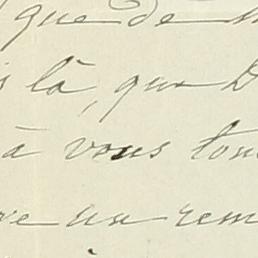 que de
là, que
à vous
un rem